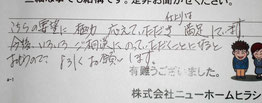 三様な事でも結構です。是非お聞かせください。
仕上りは
こちらの要望に 極力 応えていただき 満足しています
今後、いろいろご相談にのっていただくことになると
おもうので、よろしくお願いします。
有難うございました。
株式会社ニューホームヒラシ